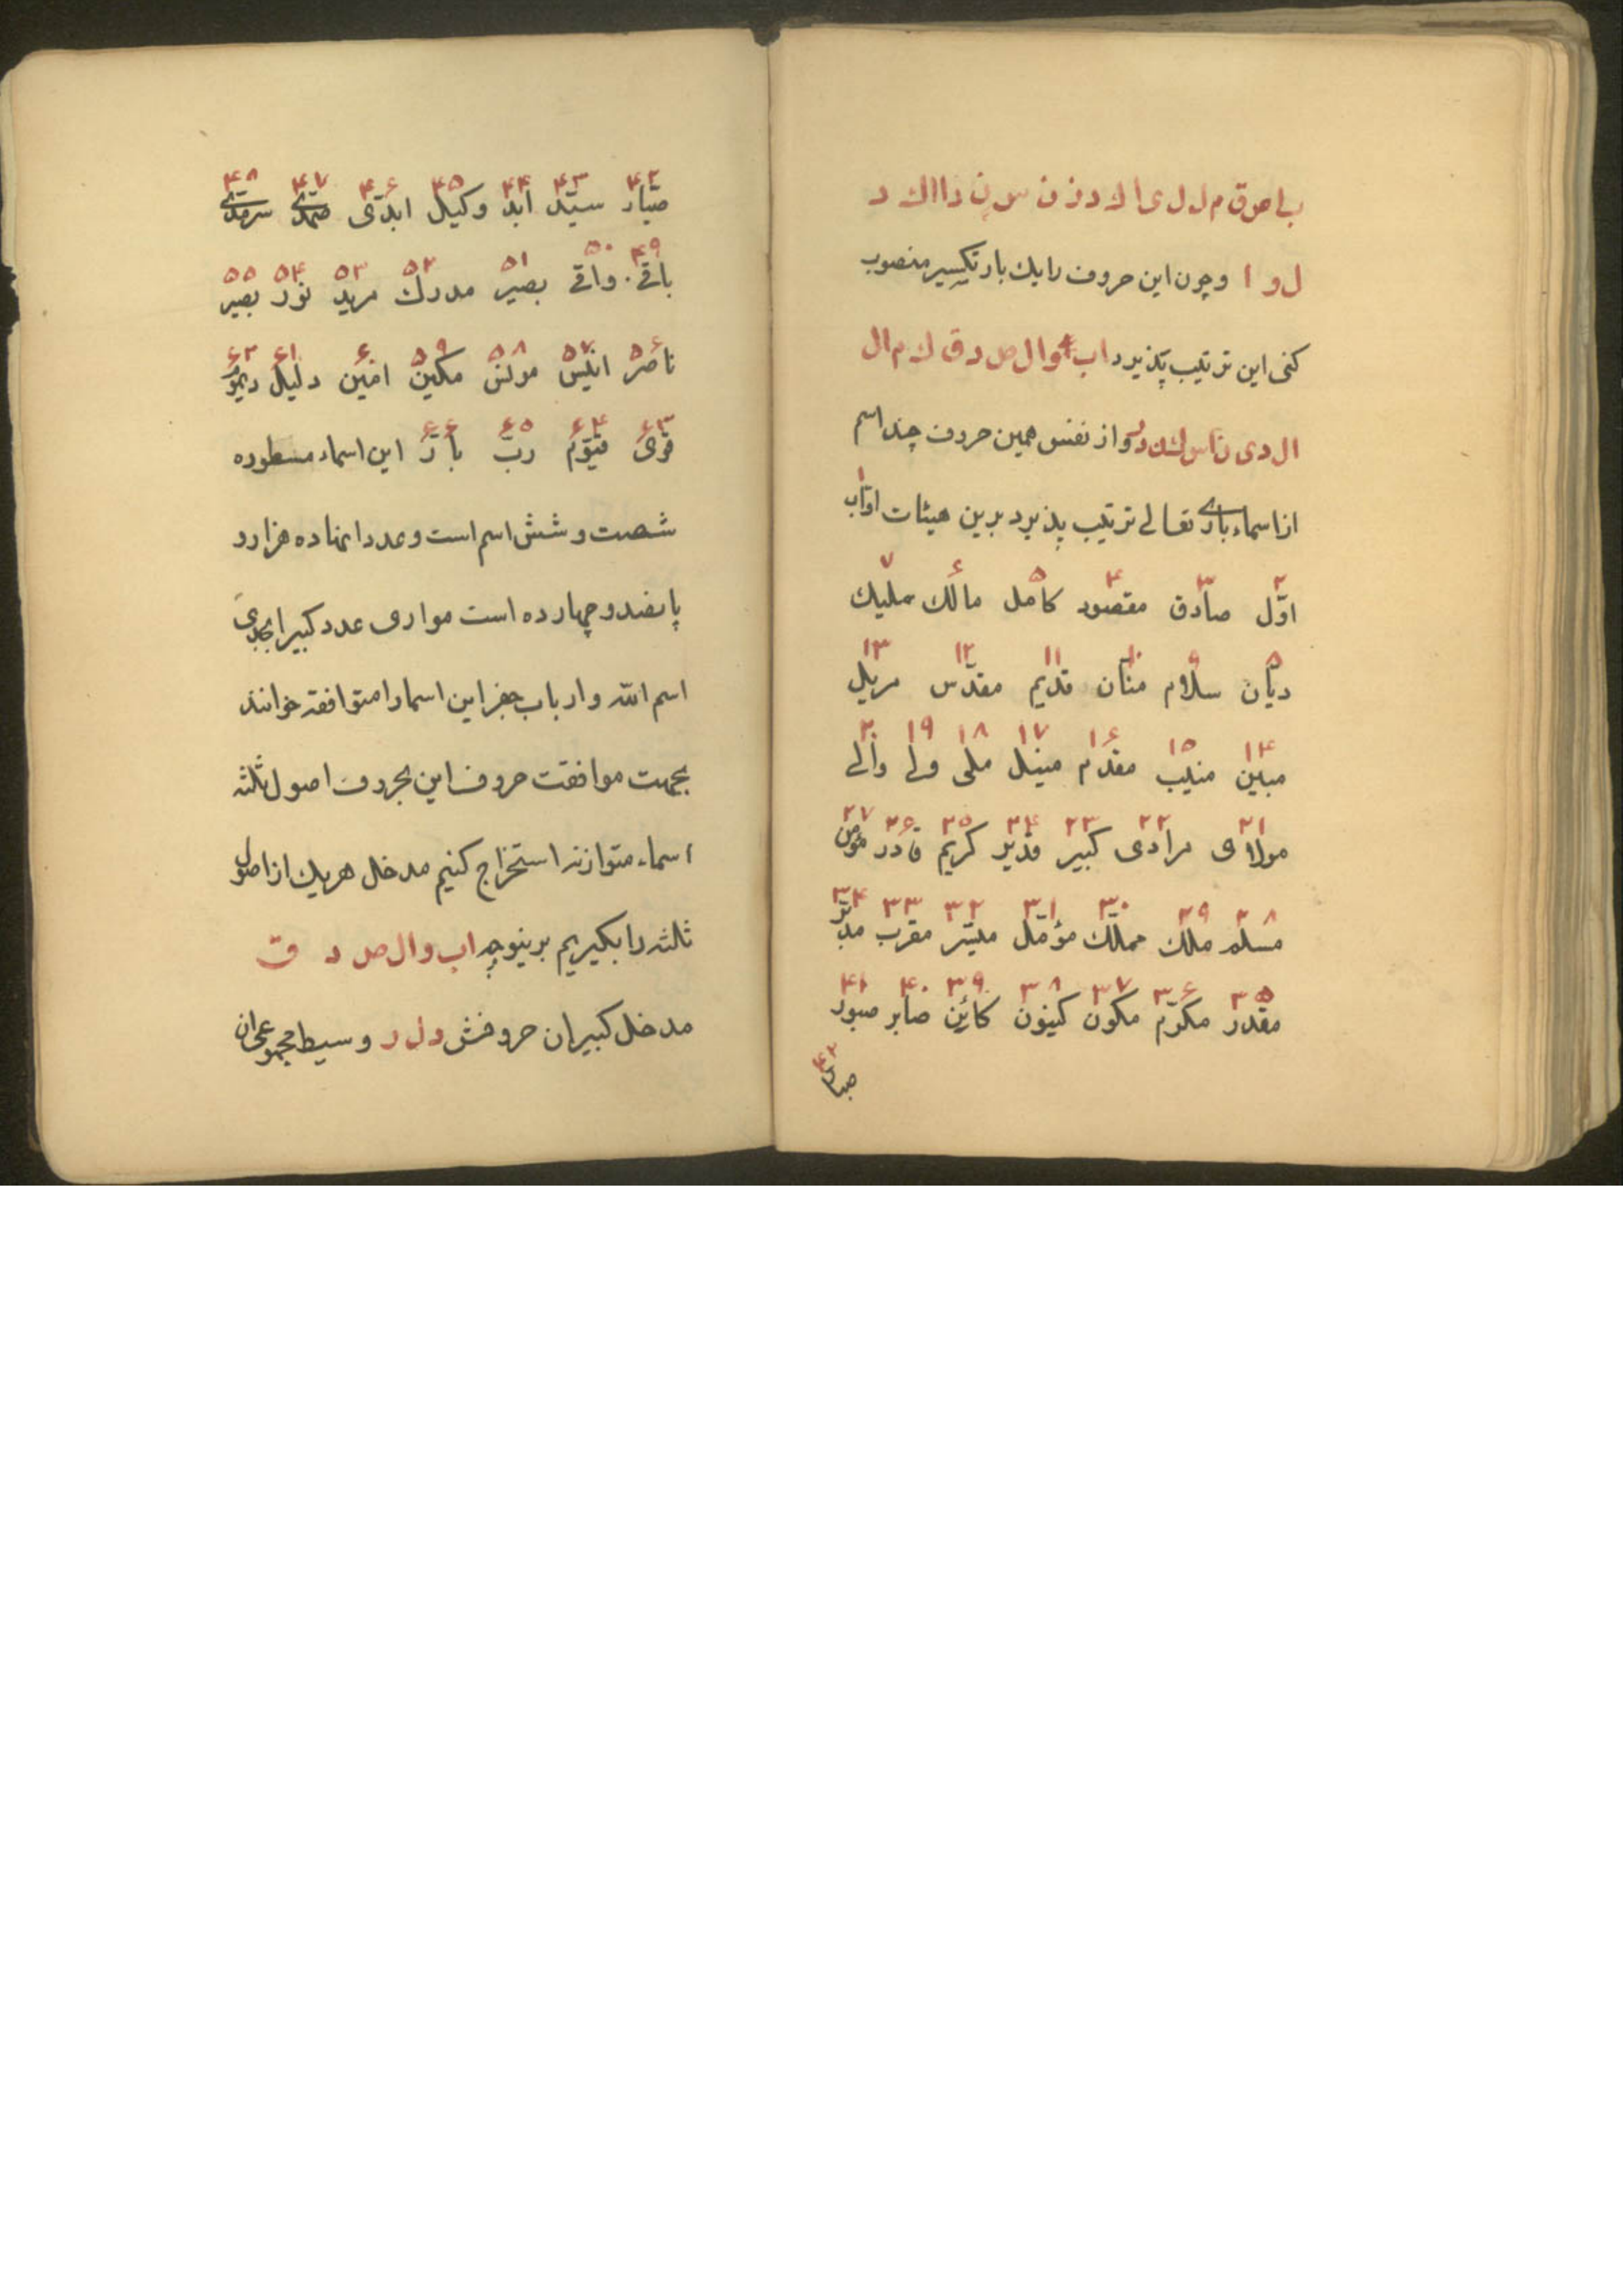 ب ا ص ق م ل ل ی ا ل د ن ن س ن د ا ا ل د
ل و ا وچون این حروف را یك بار تكسیر منصوب
كنی این ترتیب پذیرد ا ب و ا ل ص د ق ك م ا ل
ا ل د ی ن ا س ل ك د ر و از نفس همین حروف چند اسم
از اسماء باری تعالی ترتیب پذیرد برین هیئات اوّاب ۱
اوّل ۲ صادق ۳ مقصود ۴ كامل ۵ مالك ۶ ملیك ۷
دیّان ۸ سلام ۹ منّان ۱۰ قدیم ۱۱ مقدّس ۱۲ مریل ۱۳
مبین ۱۴ منیب ۱۵ مقدّم ۱۶ منیل ۱۷ ملی ۱۸ ولی ۱۹ والی ۲۰
مولای ۲۱ مرادی ۲۲ كبیر ۲۳ قدیر ۲۴ كریم ۲۵ قادر ۲۶ ۲۷
مسلم ۲۸ ملك ۲۹ مملّك ۳۰ مؤمّل ۳۱ میسّر ۳۲ مقرب ۳۳ مدبّر ۳۴
مقدر ۳۵ مكرّم ۳۶ مكون ۳۷ كینون ۳۸ كائن ۳۹ صابر ۴۰ صبور ۴۱
صبار ۴۲
صبّار ۴۲ سیّد ۴۳ ابد ۴۴ وكیل ۴۵ ابدّی ۴۶ صمدی ۴۷ سرمدی ۴۸
باقی ۴۹ واقی ۵۰ بصیر ۵۱ مدرك ۵۲ مرید ۵۳ نور ۵۴ بصیر ۵۵
ناصر ۵۶ انیس ۵۷ مونس ۵۸ مكین ۵۹ امین ۶۰ دلیل ۶۱ دیموم ۶۲
قوی ۶۳ قیّوم ۶۴ ربّ ۶۵ بارّ ۶۶ این اسماء مسطوره
شصت و شش اسم است وعدد اینها ده هزار و
پانصد و چهارده است موازی عدد كبیر ابجدی
اسم الله وارباب جفر این اسما را متوافقه خوانند
بجهت موافقت حروف این بحروف اصول ثلثه
اسماء متوازنه استخراج كنیم مدخل هریك از اصول
ثلثه را بگیریم برینوجه ا ب و ا ل ص د ق
مدخل كبیر ان حروفش د ل ر وسیط مجموعی ان